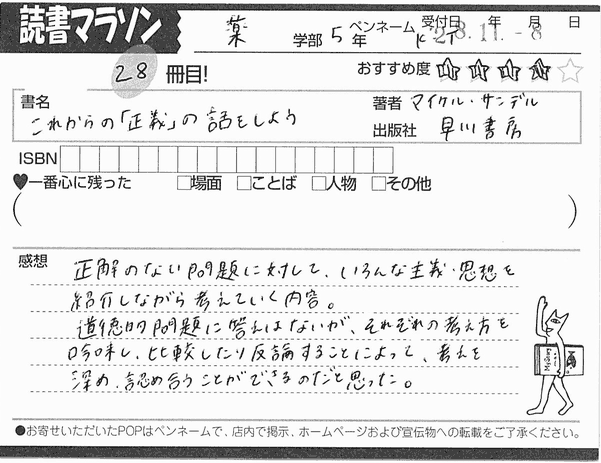 読書マラソン
薬 学部 5年 ペンネーム 受付日 年 月 日
28.11.-8
28 冊目!
おすすめ度
書名 著者 マイケル・サンデル
これからの「正義」の話をしよう 出版社 早川書房
ISBN
♥一番心に残った □場面 □ことば □人物 □その他
( )
感想
正解のない問題に対して、いろんな主義・思想を
紹介しながら考えていく内容。
道徳的問題に答えはないが、それぞれの考え方を
吟味し、比較したり反論することによって、考えを
深め、認め合うことができるのだと思った。
●お寄せいただいたPOPはペンネームで、店内で掲示、ホームページおよび宣伝物への転載をご了承ください。